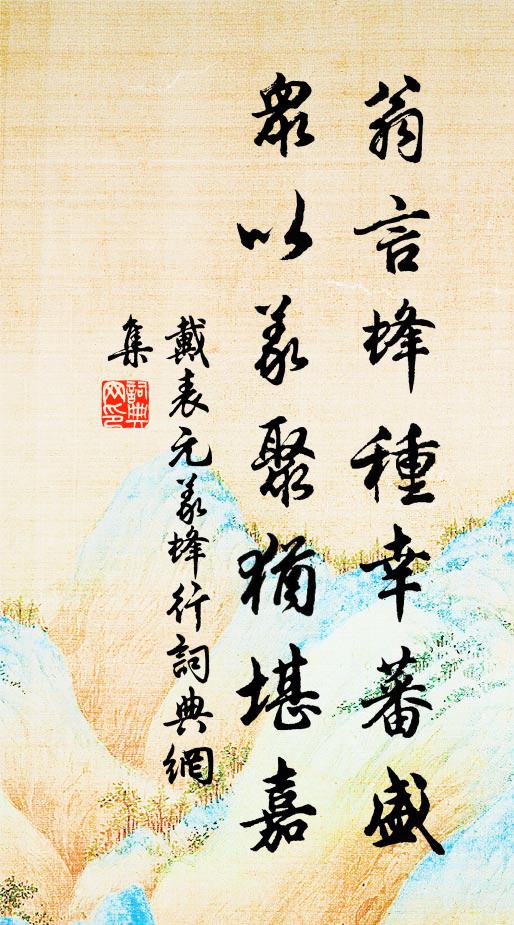 翁言蜂種幸蕃盛
衆以義聚猶堪嘉
戴表元義蜂行詞典網
集
詞典
网印